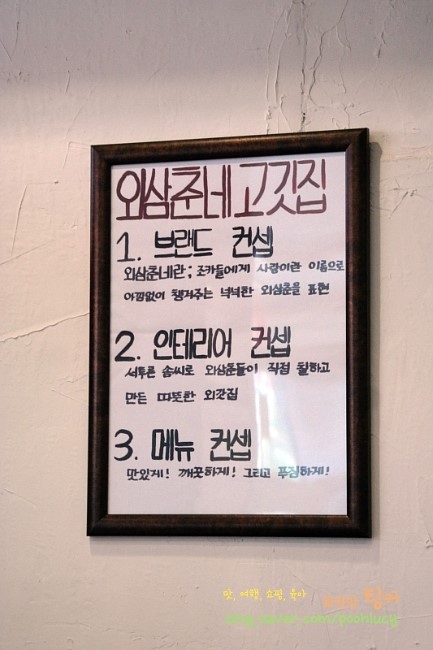 외삼춘네 고깃집
1. 브랜드 컨셉
외삼춘네란; 조카들에게 사랑이란 이름으로
아낌없이 챙겨주는 넉넉한 외삼춘을 표현
2. 인테리어 컨셉
서투른 솜씨로 외삼춘들이 직접 칠하고
만든 따뜻한 외갓집
3. 메뉴 컨셉
맛있게! 깨끗하게! 그리고 푸짐하게!
맛, 여행, 쇼핑, 육아